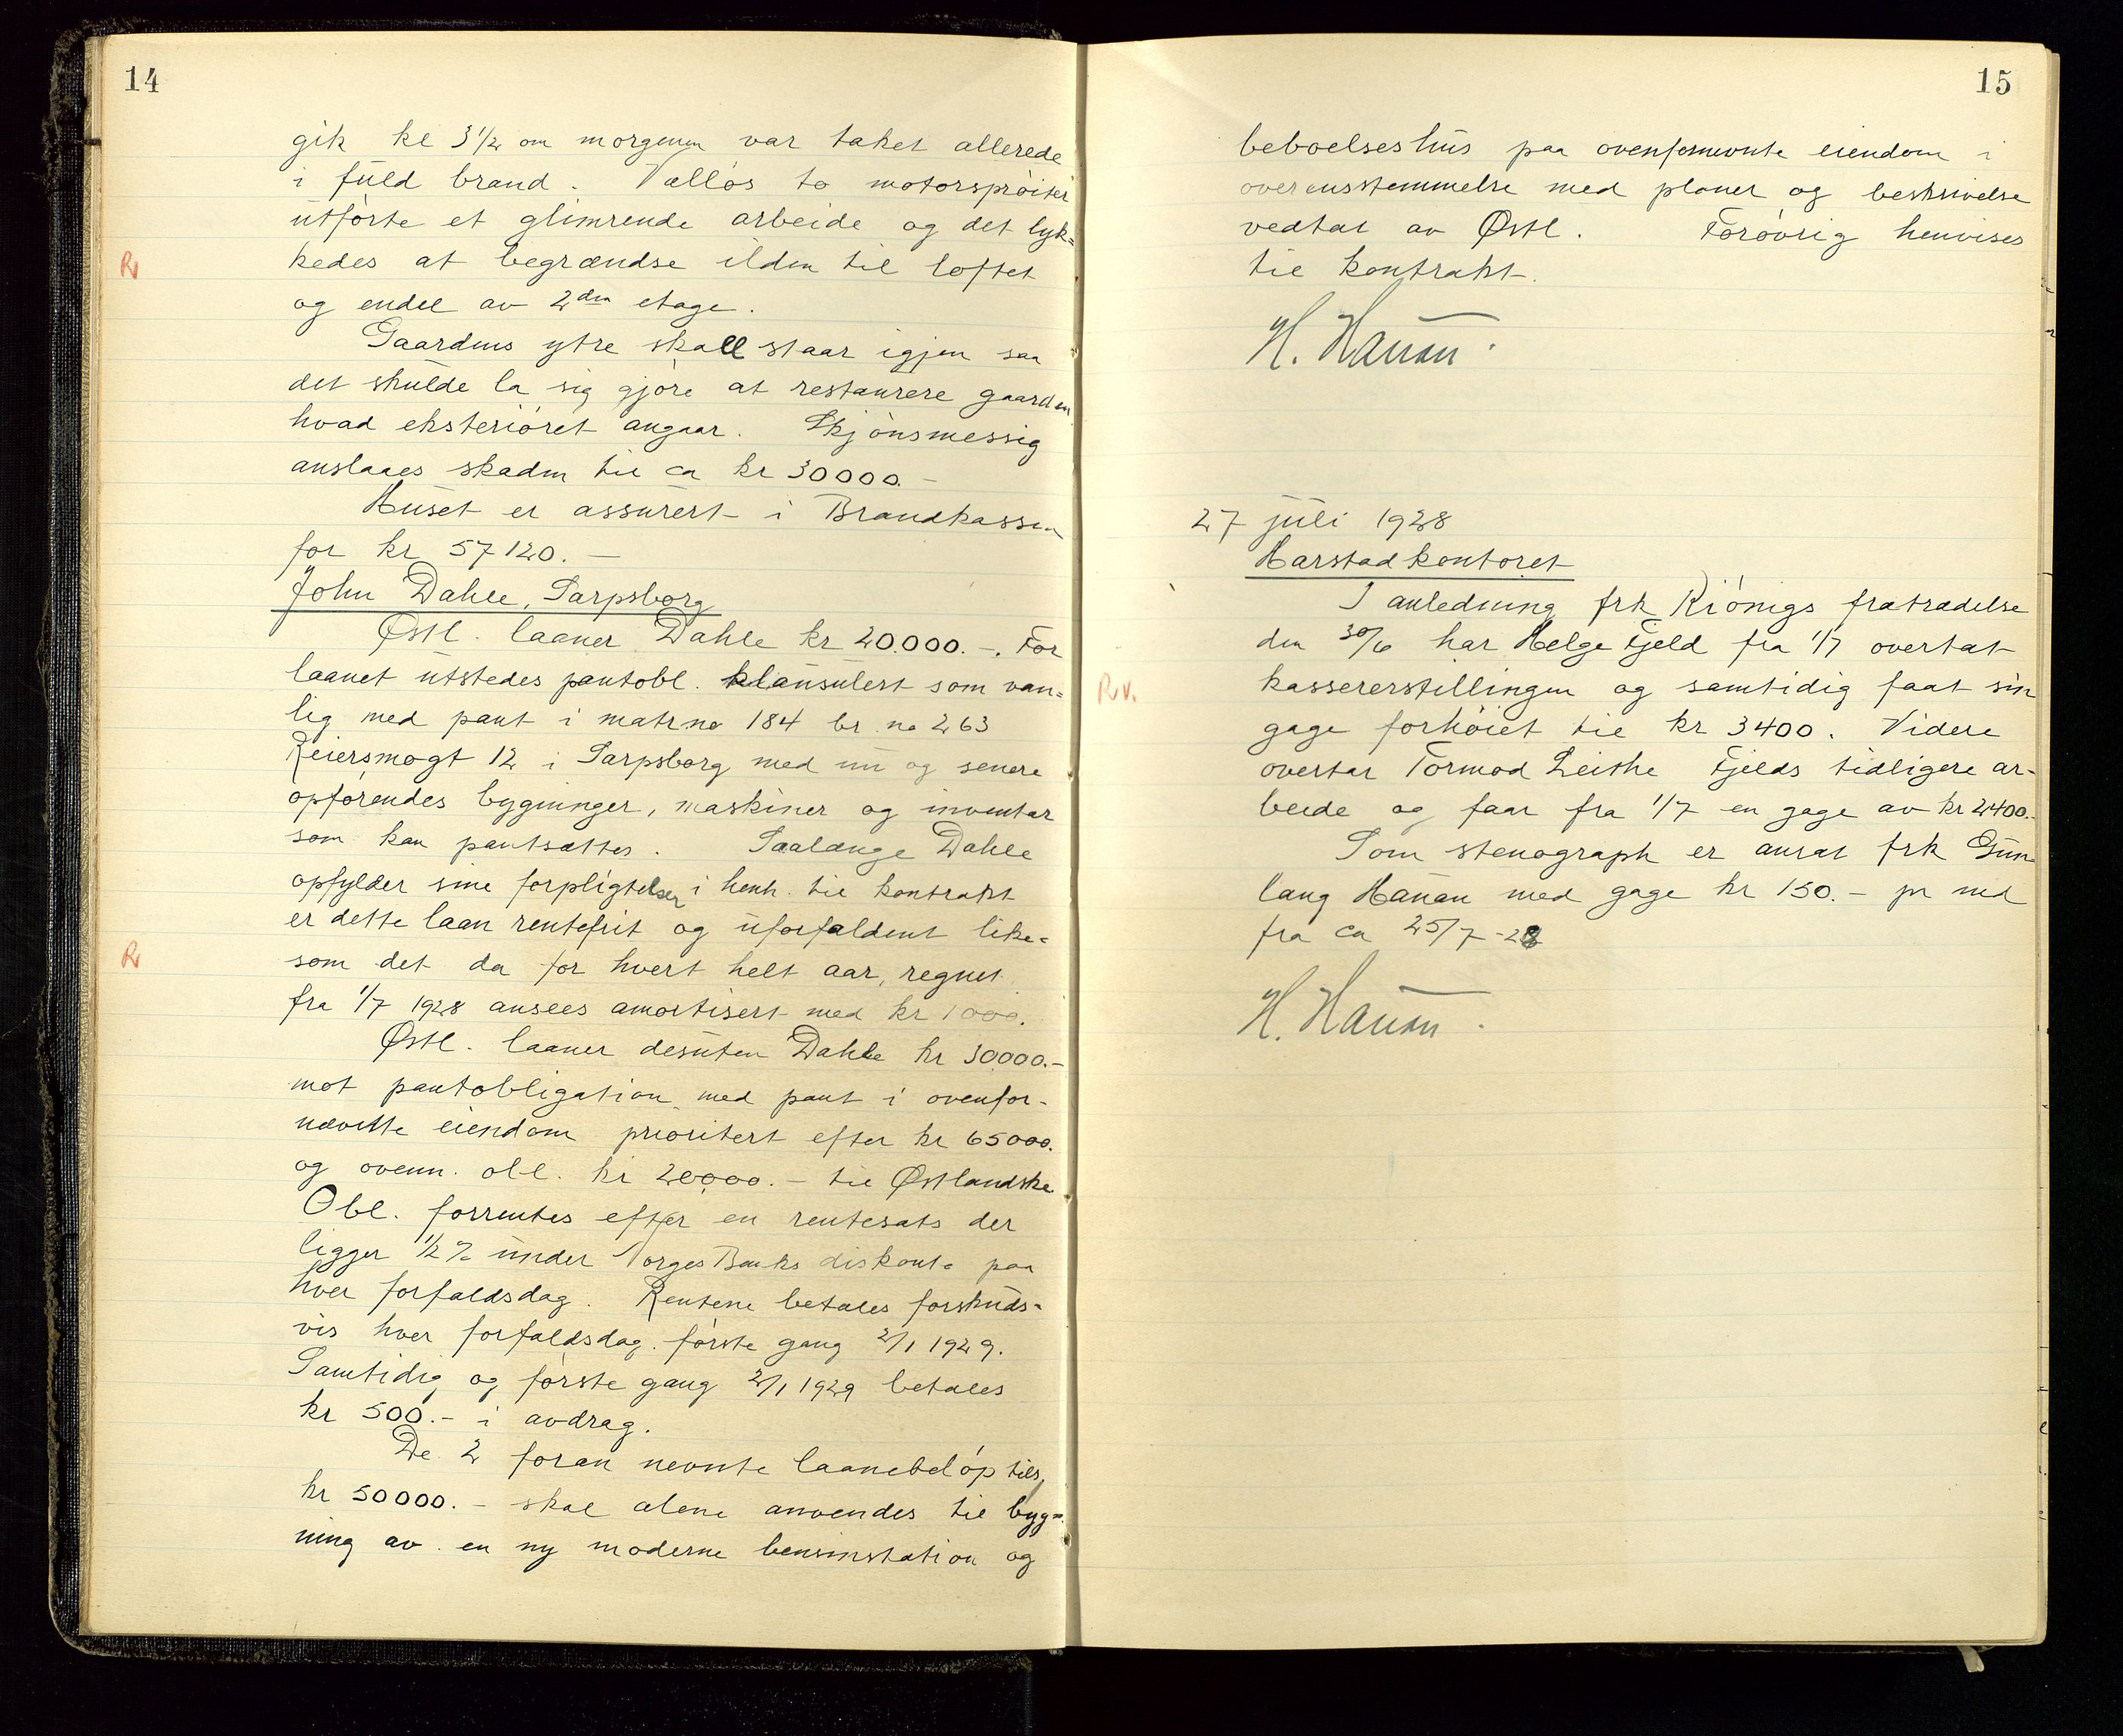 14
gik kl 3 1/2 om morgenen var taket allerede
i fuld brand. Vallös to motorspröiter
utförte et glimrende arbeide og det lyk=
R
kedes at begrændse ilden til loftet
og endel av 2den etage.
Gaardens ytre skall staar igjen saa
det skulde la sig gjöre at restaurere gaarden
hvad eksteriöret angaar. Skjönsmessig
anslaaes skaden til ca kr 30000.-
Huset er assurert i Brandkassen
for kr 57120.-
John Dahle, Sarpsborg
Østl. laaner Dahle kr 20.000.-. For
laanet utstedes pantobl. klausulert som van=
lig med pant i matrno 184 br no 263
Reiersmogt 12 i Sarpsborg med nu og senere
opförendes bygninger, maskiner og inventar
som kan pantsættes. Saalænge Dahle
opfylder sine forpligtelser i henh. til kontrakt
er dette laan rentefrit og uforfaldent like=
R
som det da for hvert helt aar, regnet
fra 1/7 1928 ansees amortisert med kr 1000.
Østl. laaner desuten Dahle kr 30000.-
mot pantobligation med pant i ovenfor-
nævnte eiendom prioritert efter kr 65000.
og ovenn. obl. kr 20000.- til Østlandske
Obl. forrentes efter en rentesats der
ligger 1/2 % under Norges Banks diskonto paa
hver forfaldsdag. Rentene betales forskuds-
vis hver forfaldsdag. förste gang 2/1 1929.
Samtidig og förste gang 2/1 1929 betales
kr 500.- i avdrag.
De 2 foran nevnte laanebelöp tils.
kr 50000.- skal alene anvendes til byg=
ning av en ny moderne bensinstation og
15
beboelseshus paa ovenfornevnte eiendom i
overensstemmelse med planer og beskrivelse
vedtat av Østl. Forövrig henvises
til kontrakt.
H. Hauan.
27 juli 1928
Harstadkontoret
I anledning frk Kiönigs fratrædelse
den 30/6 har Helge Fjeld fra 1/7 overtat
R.v.
kassererstillingen og samtidig faat sin
gage forhöiet til kr 3400. Videre
overtar Tormod Leithe Fjelds tidligere ar-
beide og faar fra 1/7 en gage av kr 2400.-
Som stenograph er ansat frk Gun-
laug Hauan med gage kr 150.- pr md
fra ca 25/7-28
H. Hauan.